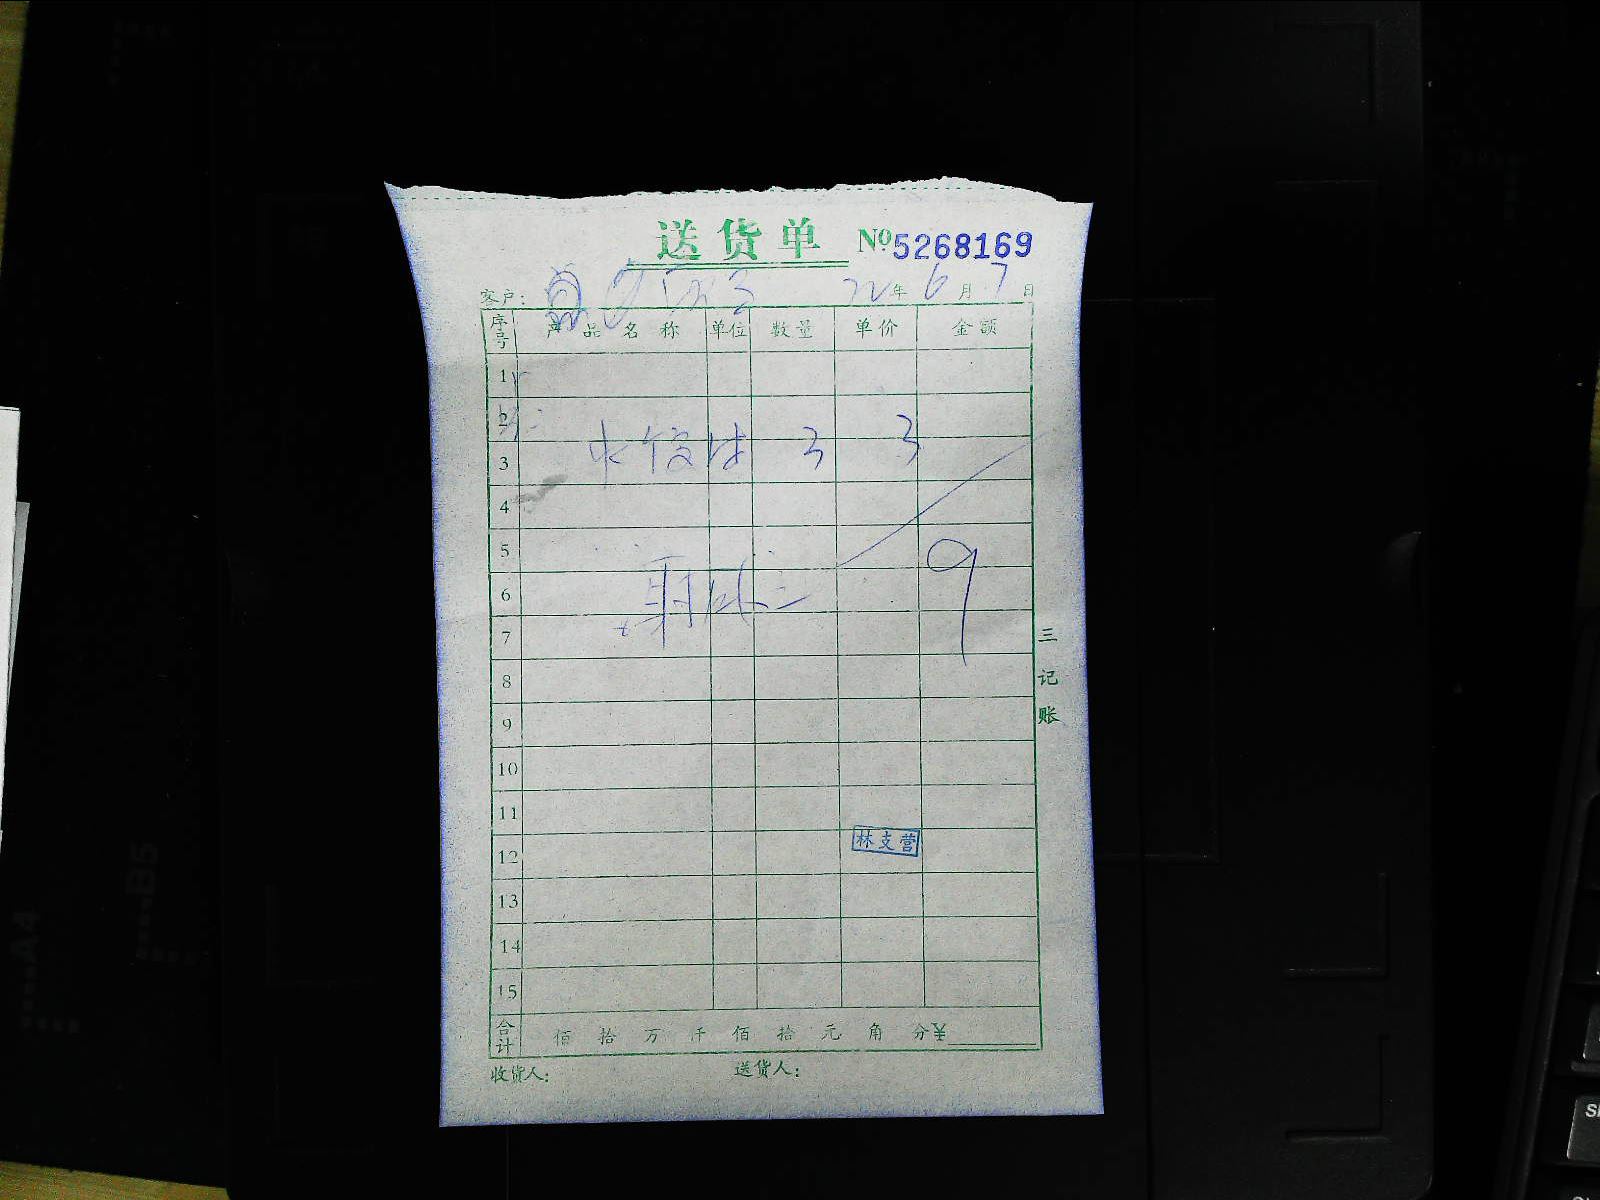 送货单 №5268169
客户： 22年6月7日
序号 产品名称 单位 数量 单价 金额
1
2
3 3 3
4
5
6 9
7
8
9
10
11
12 林支营
13
14
15
合计 佰 拾 万 仟 佰 拾 元 角 分￥
收货人： 送货人：
三记账
A4
B5